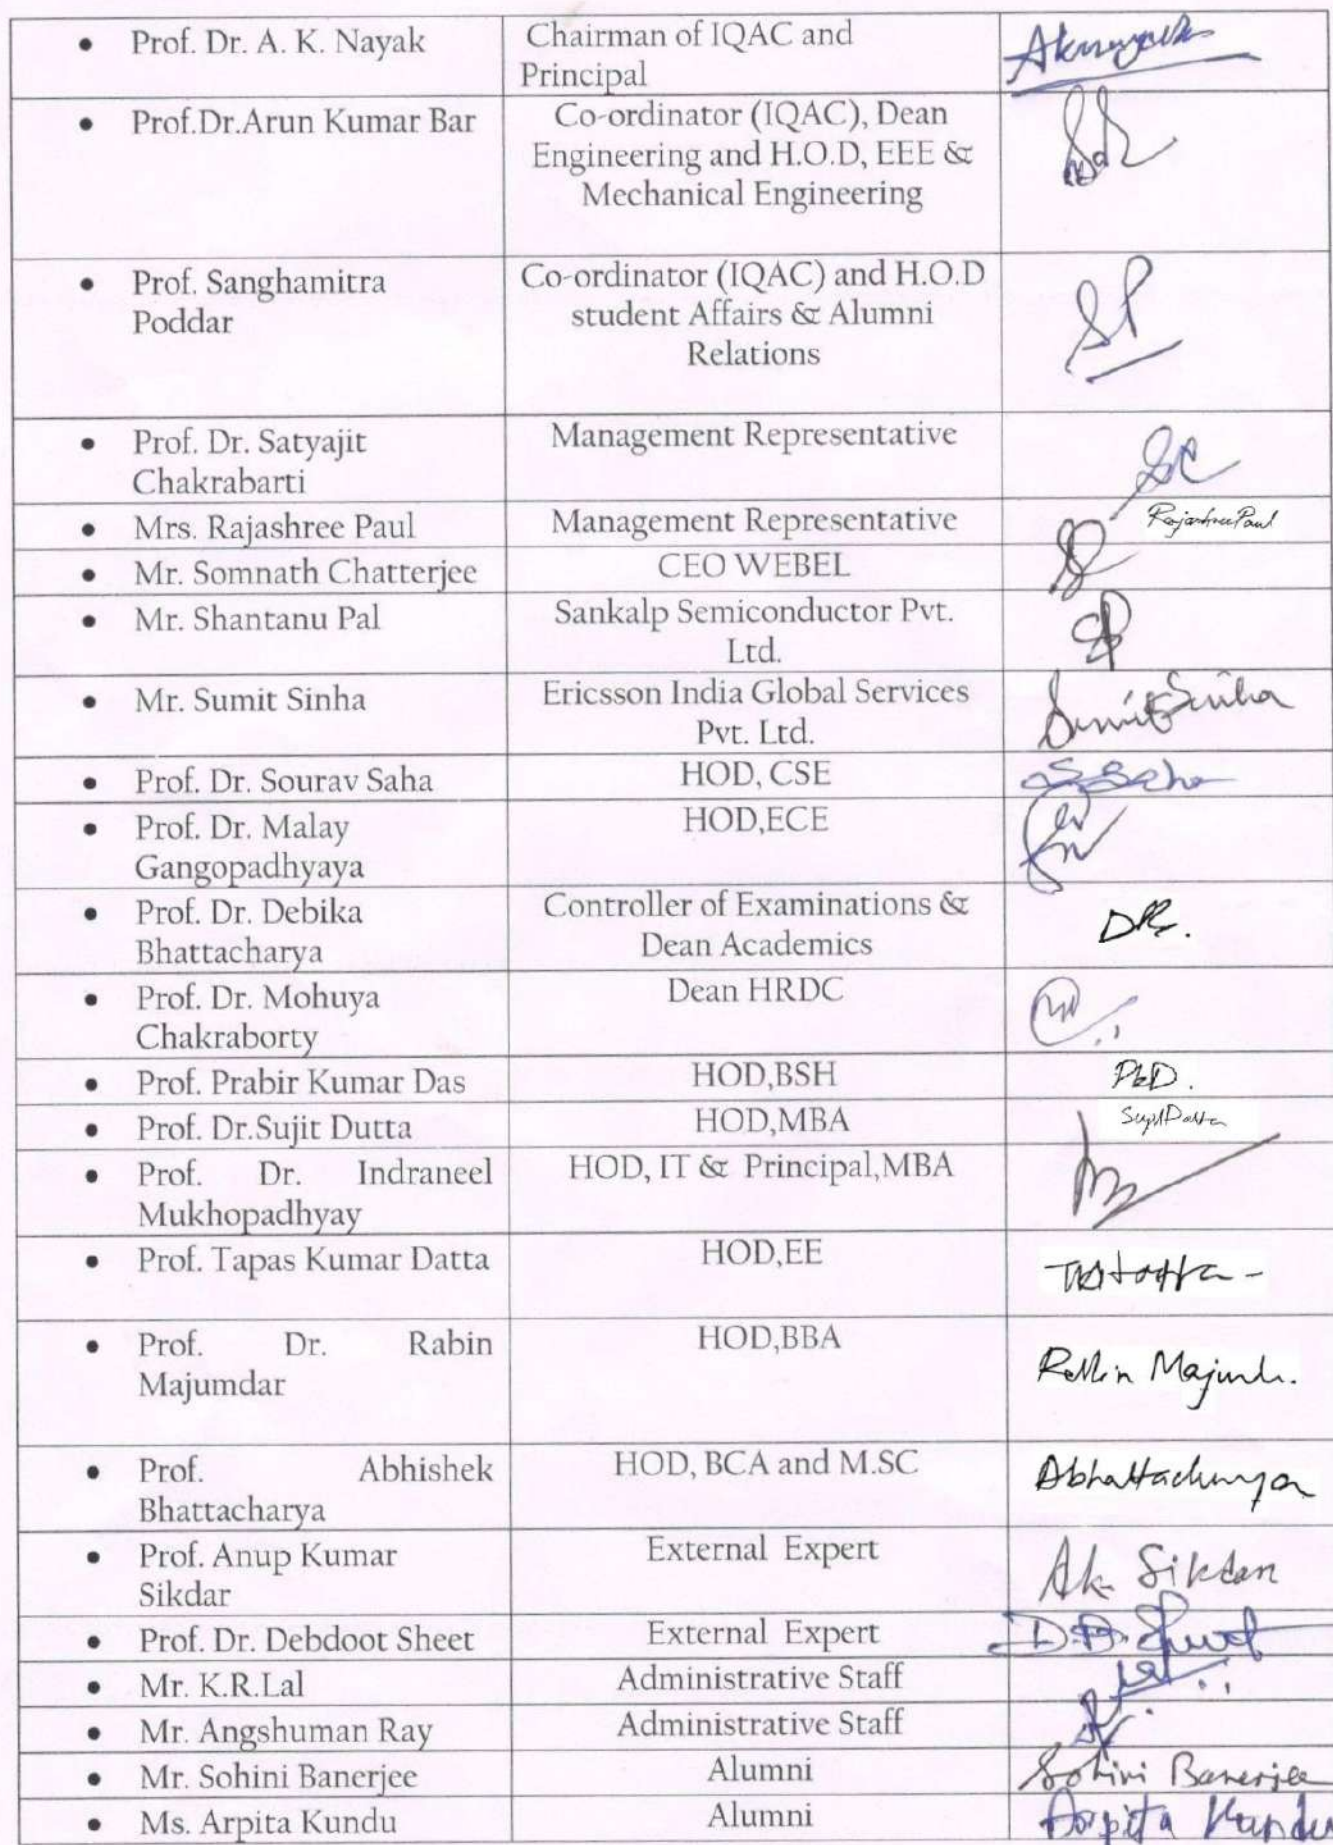 • Prof. Dr. A. K. Nayak
Chairman of IQAC and
Principal
Aknayak
• Prof.Dr.Arun Kumar Bar
Co-ordinator (IQAC), Dean
Engineering and H.O.D, EEE &
Mechanical Engineering
• Prof. Sanghamitra
Poddar
Co-ordinator (IQAC) and H.O.D
student Affairs & Alumni
Relations
SP
• Prof. Dr. Satyajit
Chakrabarti
Management Representative
SC
• Mrs. Rajashree Paul
Management Representative
Rajashree Paul
• Mr. Somnath Chatterjee
CEO WEBEL
• Mr. Shantanu Pal
Sankalp Semiconductor Pvt.
Ltd.
• Mr. Sumit Sinha
Ericsson India Global Services
Pvt. Ltd.
Sumit Sinha
• Prof. Dr. Sourav Saha
HOD, CSE
S Saha
• Prof. Dr. Malay
Gangopadhyaya
HOD,ECE
• Prof. Dr. Debika
Bhattacharya
Controller of Examinations &
Dean Academics
• Prof. Dr. Mohuya
Chakraborty
Dean HRDC
• Prof. Prabir Kumar Das
HOD,BSH
PkD.
• Prof. Dr.Sujit Dutta
HOD,MBA
Sujit Dutta
• Prof. Dr. Indraneel
Mukhopadhyay
HOD, IT & Principal,MBA
• Prof. Tapas Kumar Datta
HOD,EE
• Prof. Dr. Rabin
Majumdar
HOD,BBA
• Prof. Abhishek
Bhattacharya
HOD, BCA and M.SC
Abhattacharya
• Prof. Anup Kumar
Sikdar
External Expert
Ak Sikdar
• Prof. Dr. Debdoot Sheet
External Expert
• Mr. K.R.Lal
Administrative Staff
Lal
• Mr. Angshuman Ray
Administrative Staff
• Mr. Sohini Banerjee
Alumni
Sohini Banerjee
• Ms. Arpita Kundu
Alumni
Arpita Kundu